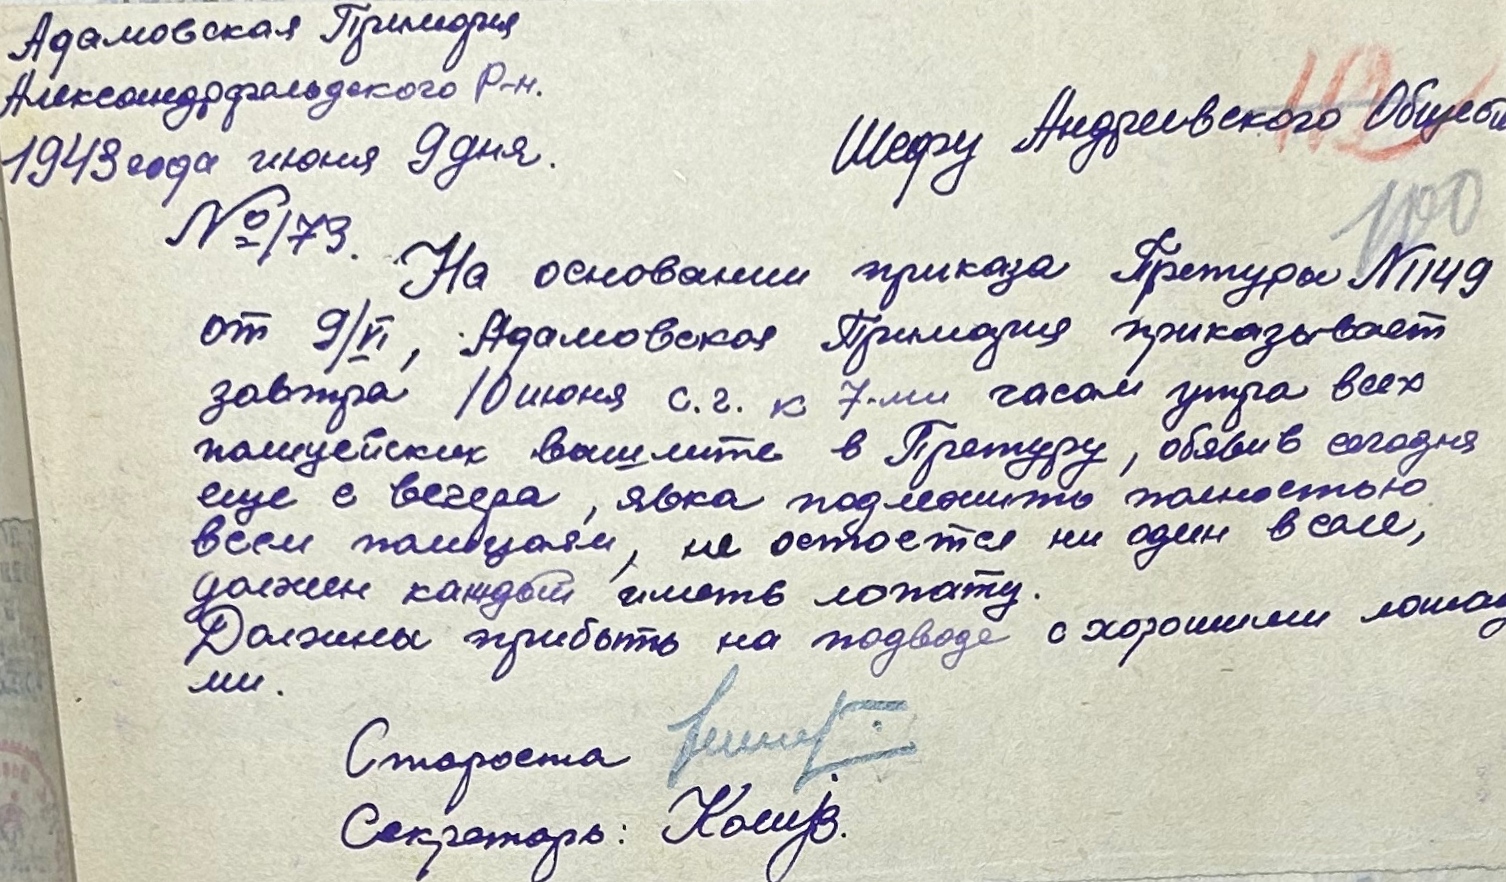 Адамовская Примария
Александрфельдского Р-н.
1943 года июня 9 дня.
Шефу Андреевского Общест
102
100
№ 173.
На основании приказа Претуры № 1149
от 9/VI, Адамовская Примария приказывает
завтра 10 июня с.г. к 7-ми часам утра всех
полицейских вышлите в Претуру, обявив сегодня
еще с вечера, явка подлежить полностью
всем полицаям, не остается ни один в селе,
должен каждый иметь лопату.
Должны прибыть на подводе с хорошими лошад
ми.
Староста
Секретарь: